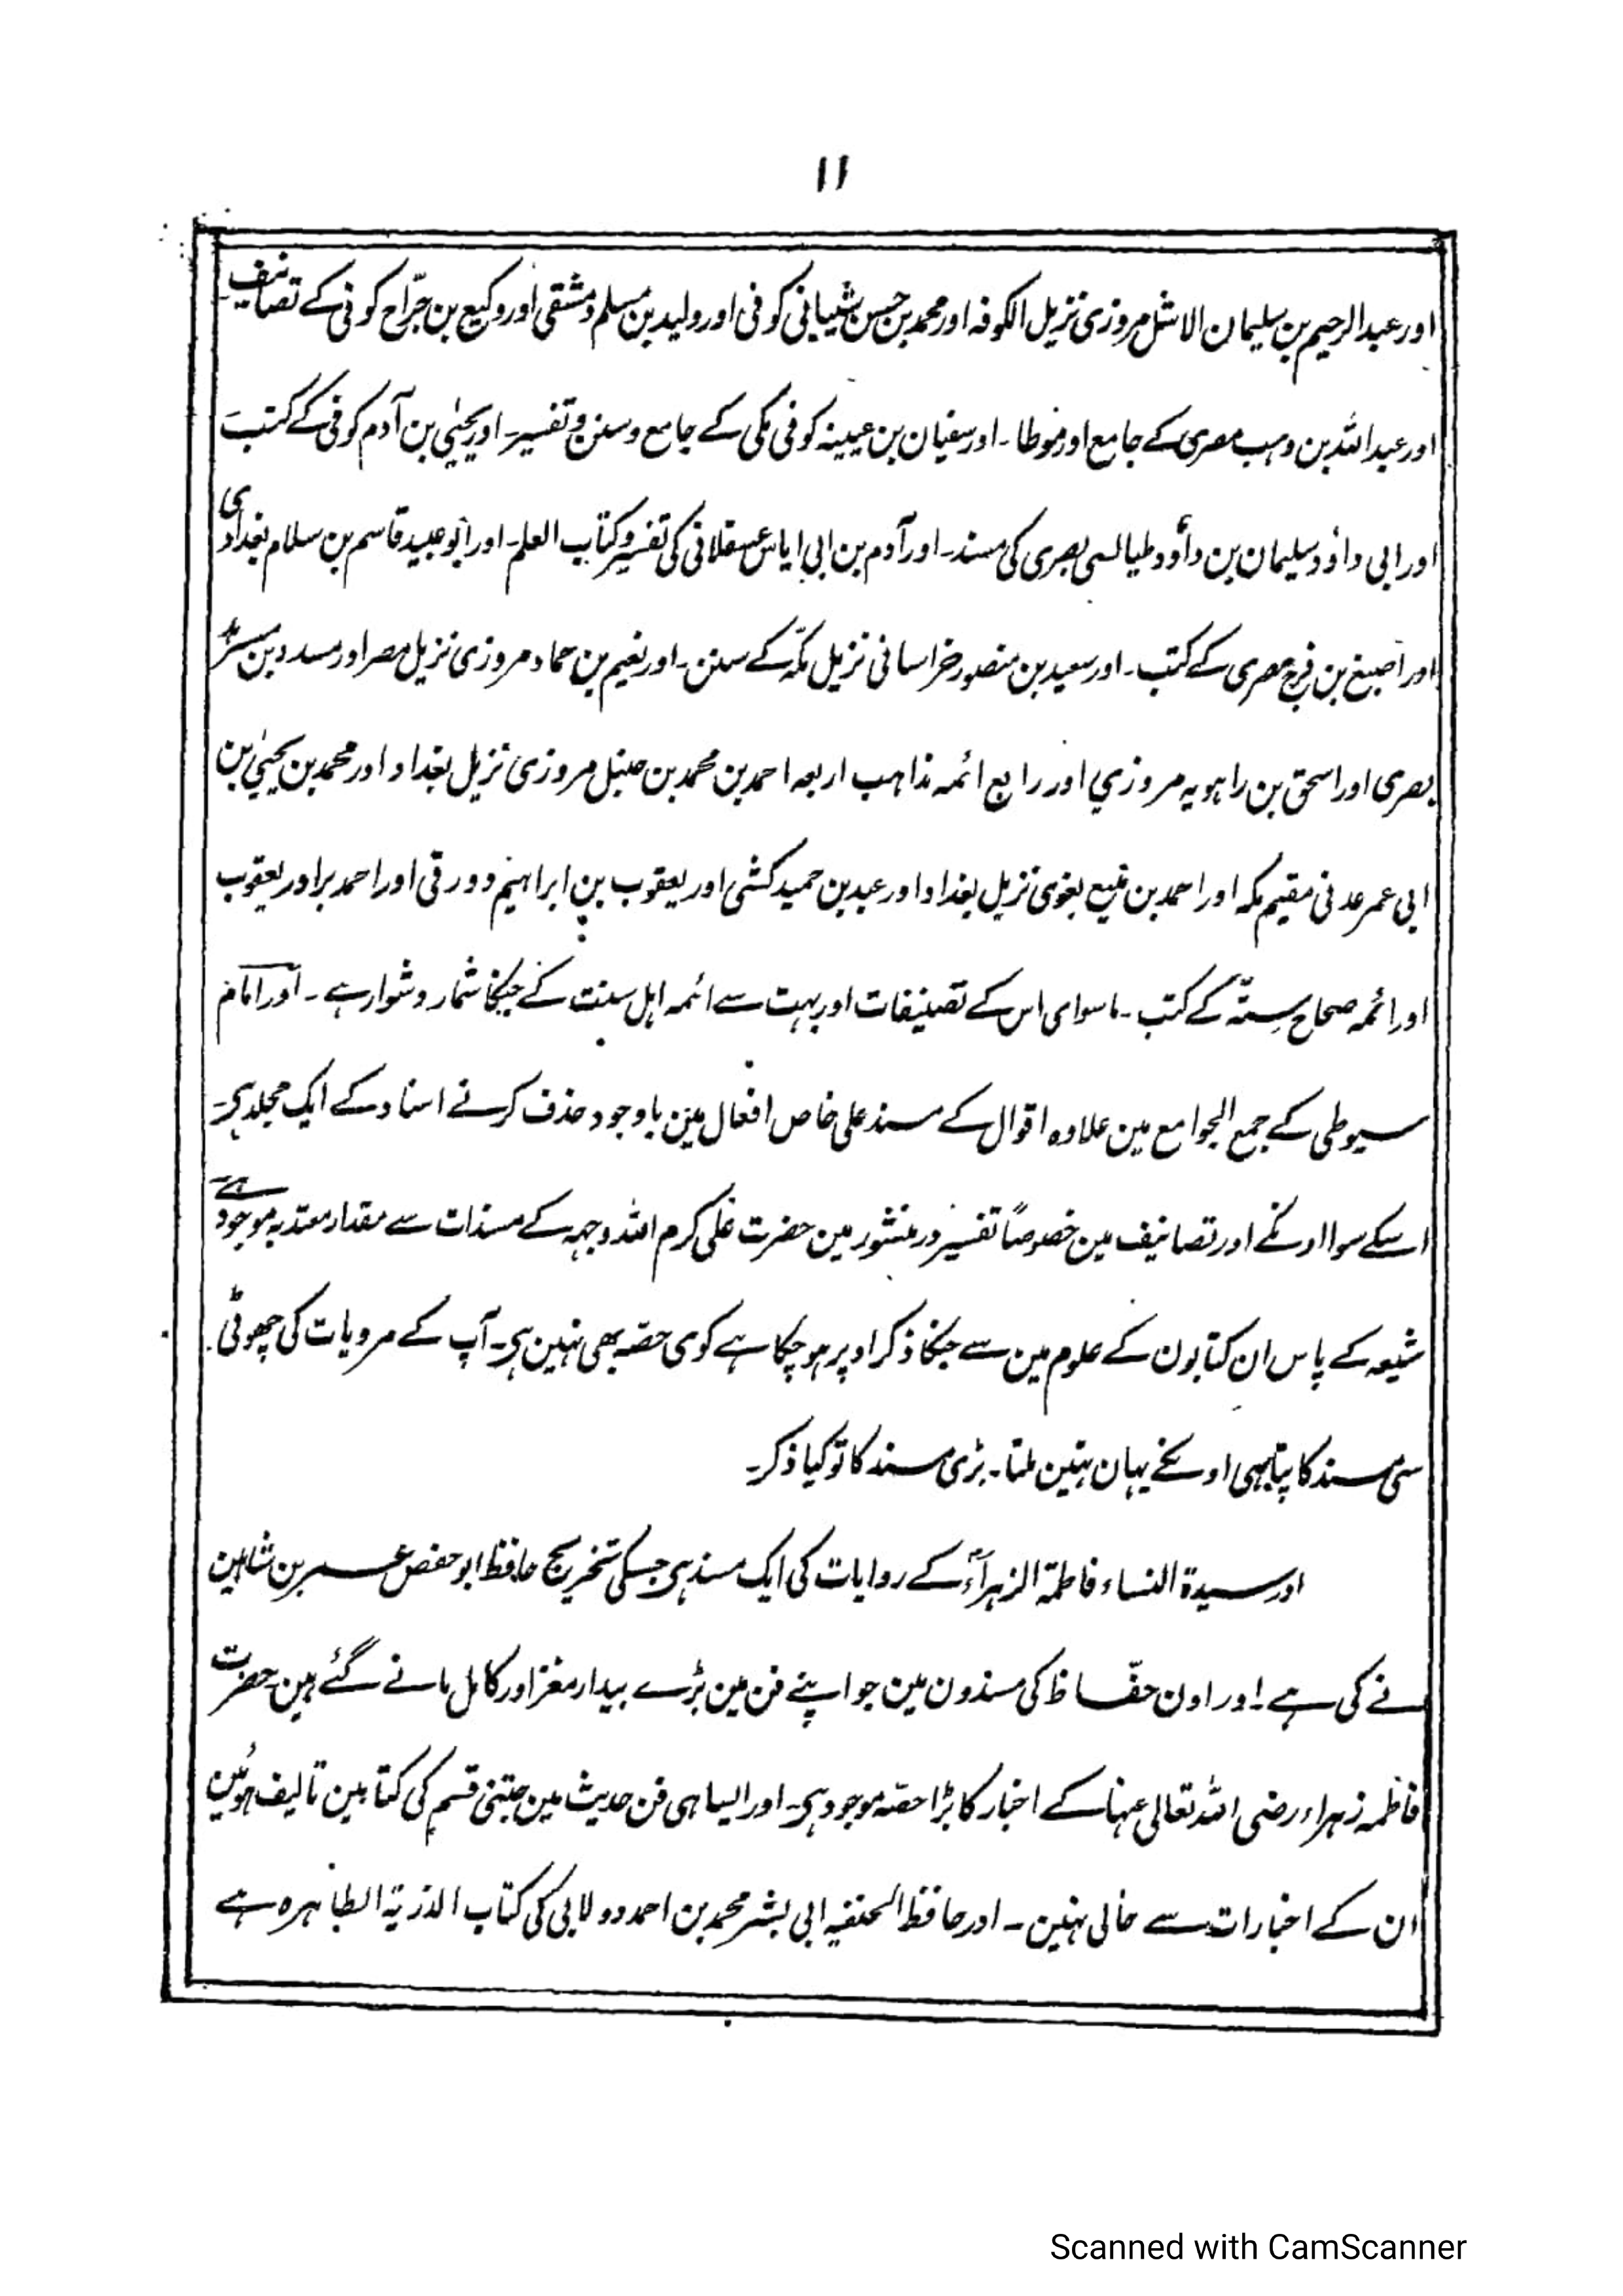 ۱۱
اور عبد الرحیم بن سلیمان الاشل مروزی نزیل الکوفہ اور محمد بن حسن شیبانی کوفی اور ولید بن مسلم دمشقی اور وکیع بن جرّاح کوفی کے تصانیف۔
اور عبد اللہ بن وہب مصری کے جامع اور موطا۔ اور سفیان بن عیینہ کوفی مکی کے جامع و سنن و تفسیر۔ اور یحیٰی بن آدم کوفی کے کتب
اور ابی داؤد سلیمان بن داؤد طیالسی بصری کی مسند۔ اور آدم بن ابی ایاس عسقلانی کی تفسیر و کتاب العلم۔ اور ابو عبید قاسم بن سلام بغدادی
اور اصبغ بن فرج مصری کے کتب۔ اور سعید بن منصور خراسانی نزیل مکّہ کے سنن۔ اور نعیم بن حماد مروزی نزیل مصر اور مسدد بن مسرہد
بصری اور اسحق بن راہویہ مروزی اور رابع ائمہ مذاہب اربعہ احمد بن محمد بن حنبل مروزی نزیل بغداد اور محمد بن یحیٰی بن
ابی عمر عدنی مقیم مکہ اور احمد بن منیع بغوی نزیل بغداد اور عبد بن حمید کشی اور یعقوب بن ابراہیم دورقی اور احمد برادر یعقوب
اور ائمہ صحاح ستّہ کے کتب۔ ماسوای اس کے تصنیفات اور بہت سے ائمہ اہل سنت کے جنکا شمار دشوار ہے۔ اور امام
سیوطی کے جمع الجوامع مین علاوہ اقوال کے مسند علی خاص افعال مین باوجود حذف کرنے اسناد کے ایک مجلد ہی۔
اسکے سوا اونکے اور تصانیف مین خصوصًا تفسیر درمنثور مین حضرت علی کرم اللہ وجہہ کے مسندات سے مقدار معتد بہ موجود ہے
شیعہ کے پاس ان کتابون کے علوم مین سے جنکا ذکر اوپر ہو چکا ہے کوی حصہ بھی نہین ہی۔ آپ کے مرویات کی چھوٹی
سی مسند کا پتا بھی اونکے یہان نہین ملتا۔ بڑی مسند کا تو کیا ذکر۔
اور سیدۃ النساء فاطمۃ الزہراءؑ کے روایات کی ایک مسند ہی جسکی تخریج حافظ ابو حفص عمر بن شاہین
نے کی ہے۔ اور اون حفّاظ کی مسندون مین جو اپنے فن مین بڑے بیدار مغز اور کامل مانے گئے ہین حضرت
فاطمہ زہراء رضی اللہ تعالی عنہا کے اخبار کا بڑا حصّہ موجود ہی۔ اور ایسا ہی فن حدیث مین جتنی قسم کی کتابین تالیف ہوئین
ان کے اخبارات سے خالی نہین۔ اور حافظ الحنفیہ ابی بشر محمد بن احمد دولابی کی کتاب الذریۃ الطاہرہ ہے
Scanned with CamScanner